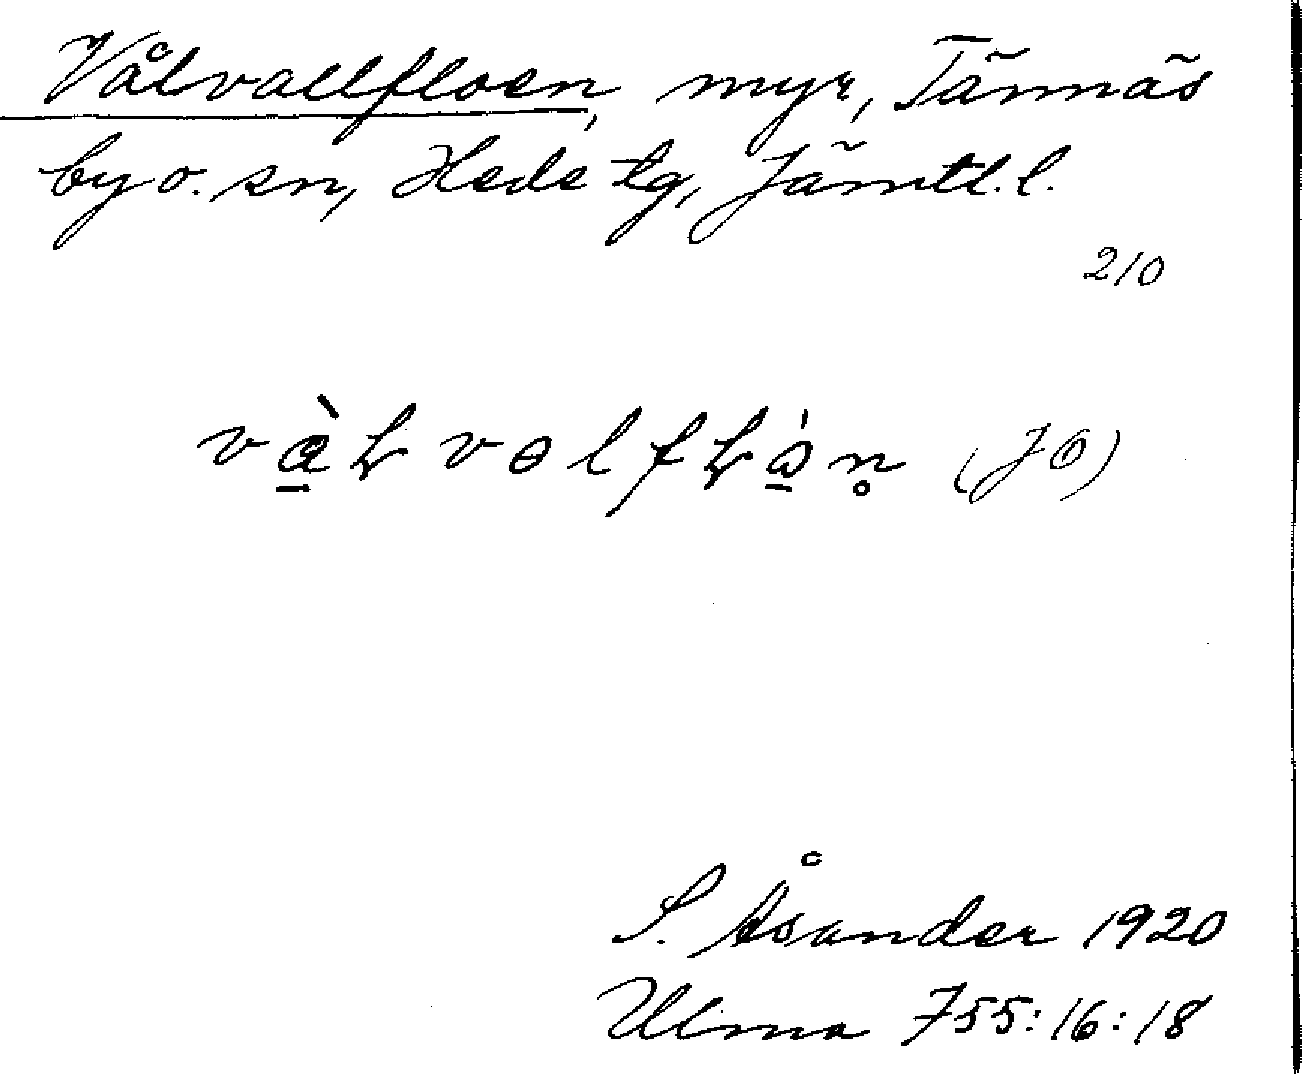 Vålvallfloen, myr, Tännäs
by o. sn, Hede tg, Jämtl. l.
210
S. Åsander 1920
Ulma 755:16:18